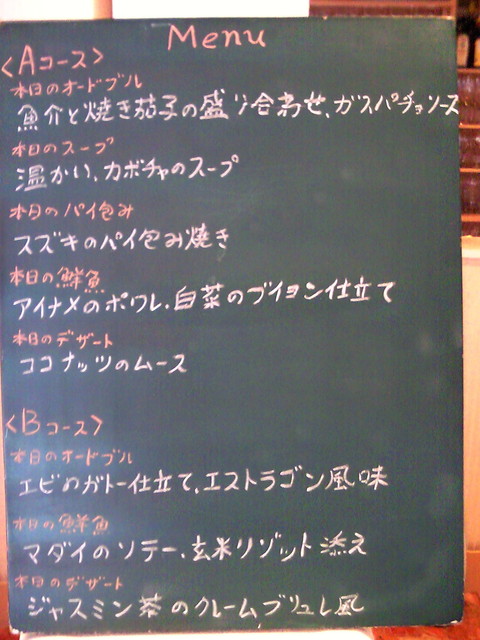 Menu
<Aコース>
本日のオードブル
魚介と焼き茄子の盛り合わせ、ガスパチョソース
本日のスープ
温かい、カボチャのスープ
本日のパイ包み
スズキのパイ包み焼き
本日の鮮魚
アイナメのポワレ、白菜のブイヨン仕立て
本日のデザート
ココナッツのムース
<Bコース>
本日のオードブル
エビのガトー仕立て、エストラゴン風味
本日の鮮魚
マダイのソテー、玄米リゾット添え
本日のデザート
ジャスミン茶のクレームブリュレ風